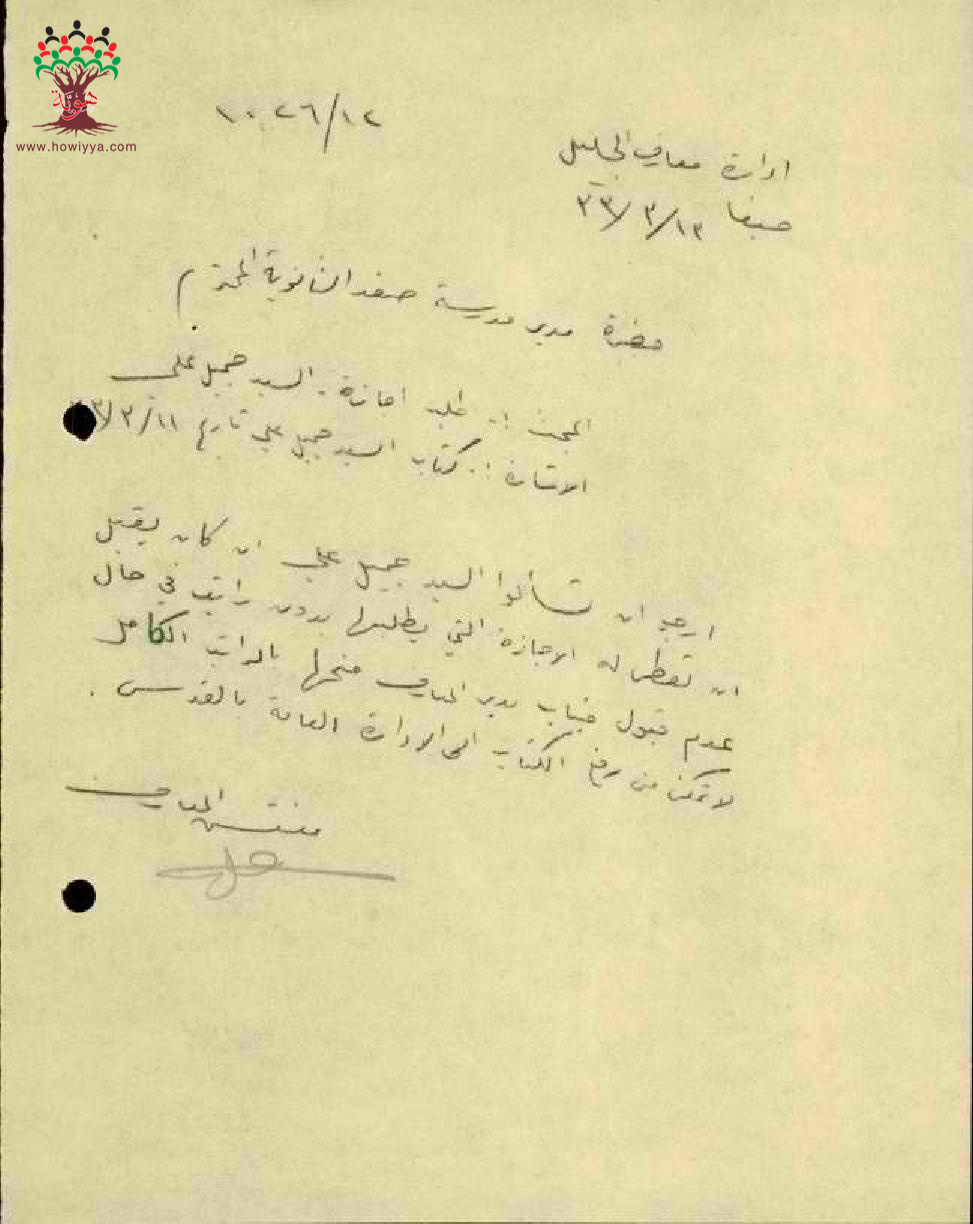 هوية
www.howiyya.com
١٠٢٦/١٢
ادارة معارف الجليل
حيفا ١٣/٣/٣٣
حضرة مدير مدرسة صفد الثانوية المحترم
المبحث :. طلب اجازة. السيد جميل علي
الاشارة :. كتاب السيد جميل علي تاريخ ١١/٣/٣٣
ارجو ان تسألوا السيد جميل علي ان كان يقبل
ان تعطى له الاجازة التي يطلبها بدون راتب في حال
عدم قبول جناب مدير المعارف منحها بالراتب الكامل
لاتمكن من رفع الكتاب الى الادارة العامة بالقدس .
مفتش المعارف